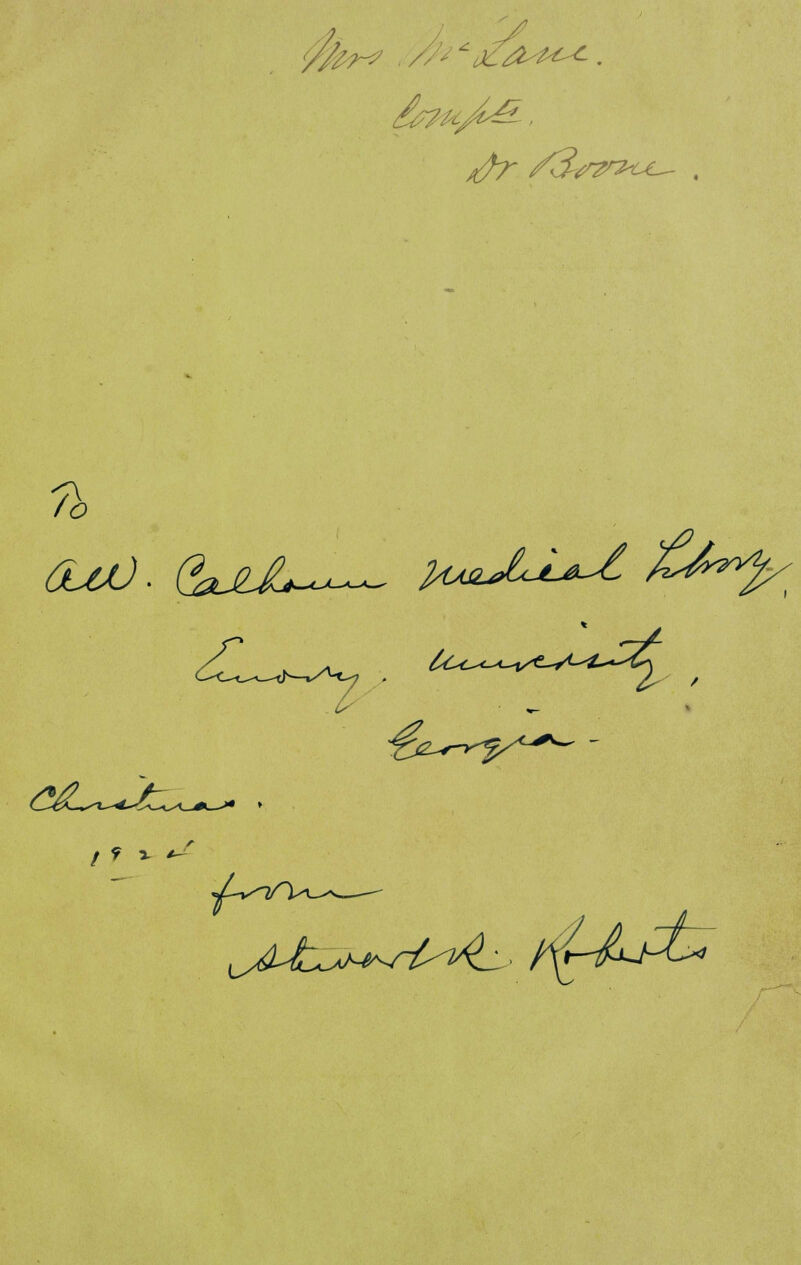 Mrs McLane.
Compts.
Dr Boone.
To
A.W. Calhoun Medical Library,
Emory. University,
Georgia -
Christmas.
1925
from
Stewart R. Roberts